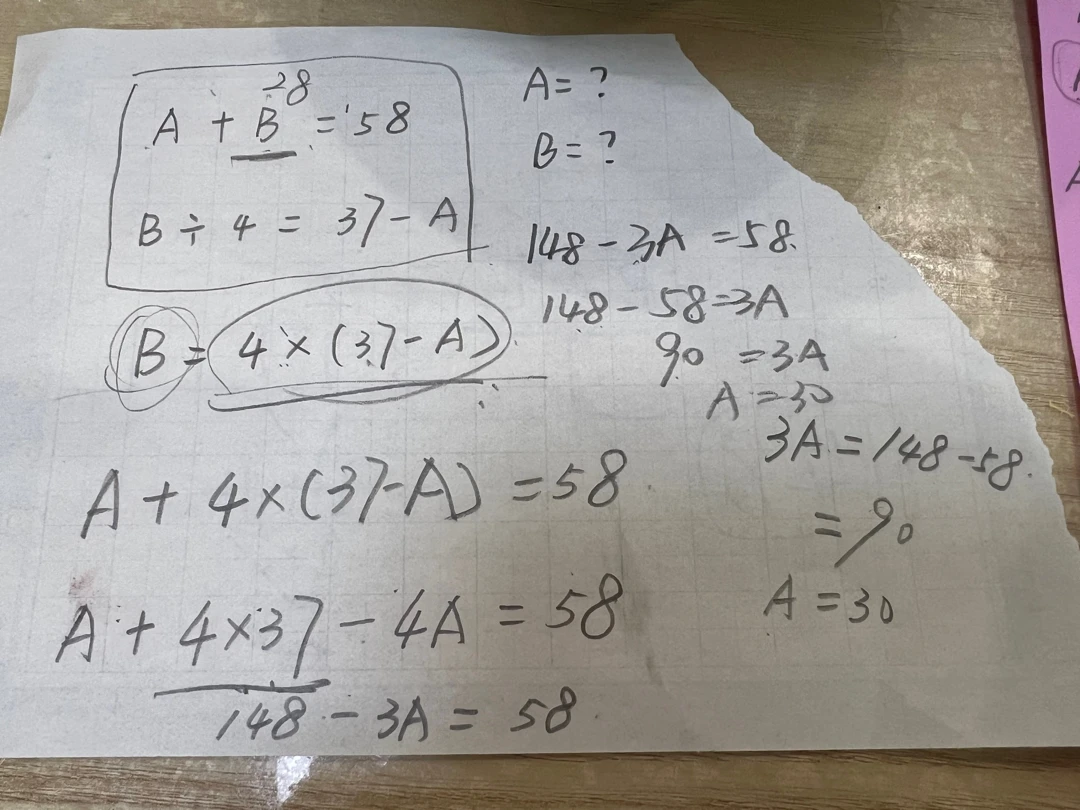 28
A + B = 58
B ÷ 4 = 37 - A
B = 4 × (37 - A)
A + 4 × (37 - A) = 58
A + 4 × 37 - 4A = 58
148 - 3A = 58
A = ?
B = ?
148 - 3A = 58
148 - 58 = 3A
90 = 3A
A = 30
3A = 148 - 58
= 90
A = 30